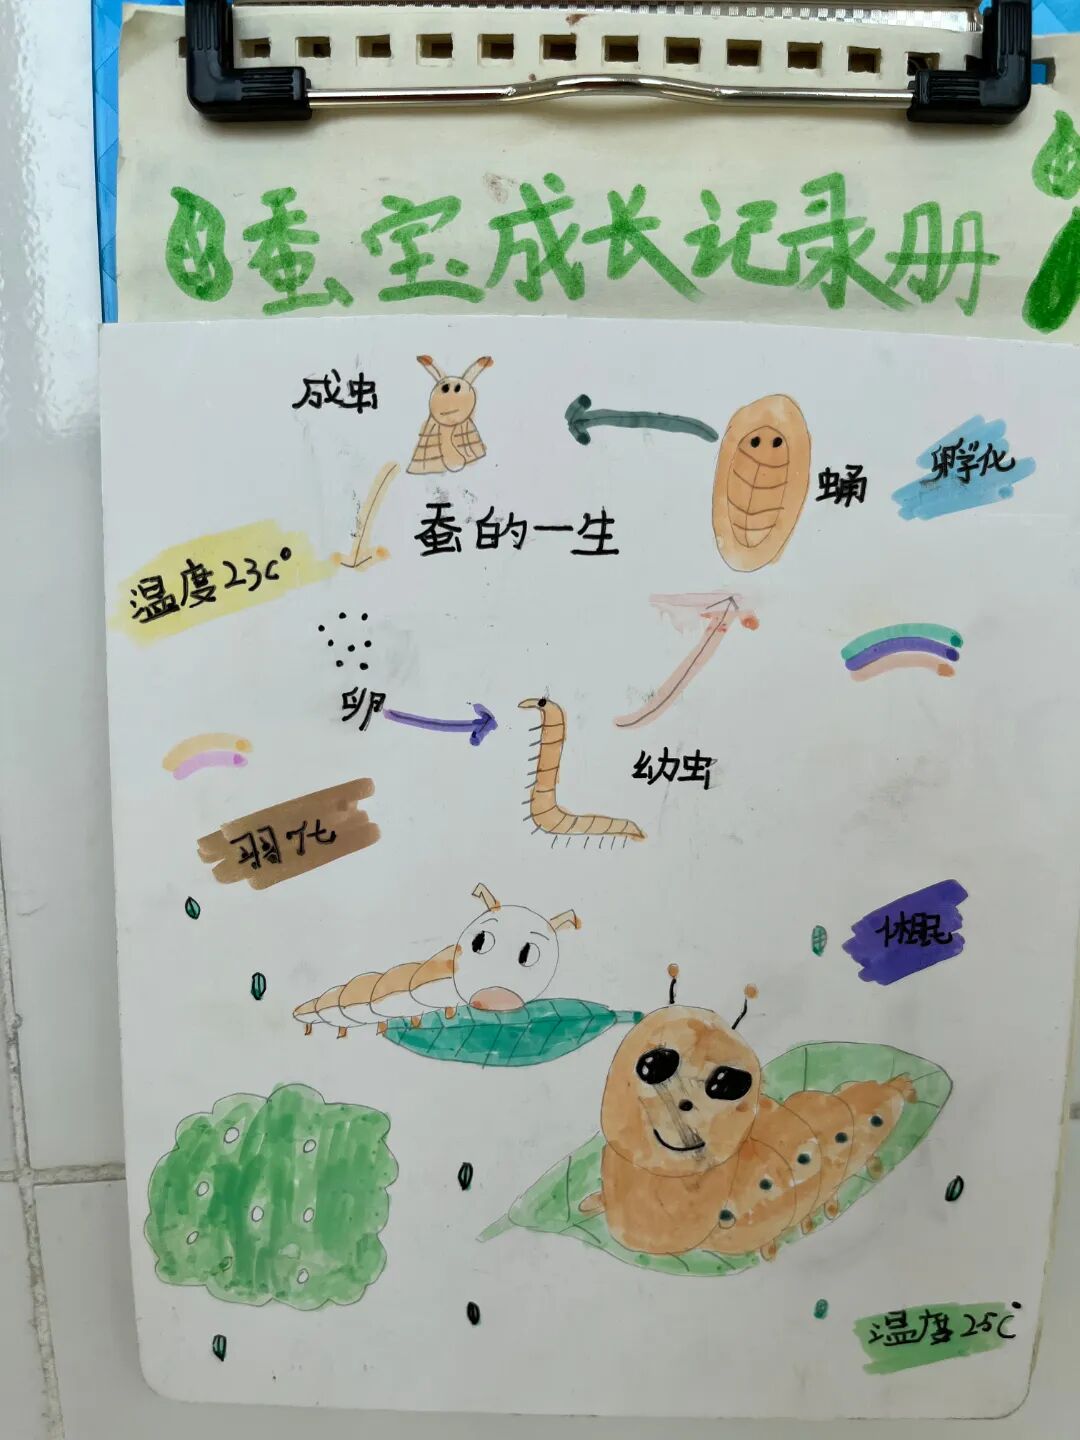 蚕宝成长记录册
成虫
蛹
孵化
蚕的一生
温度23C°
卵
幼虫
羽化
休眠
温度25C°